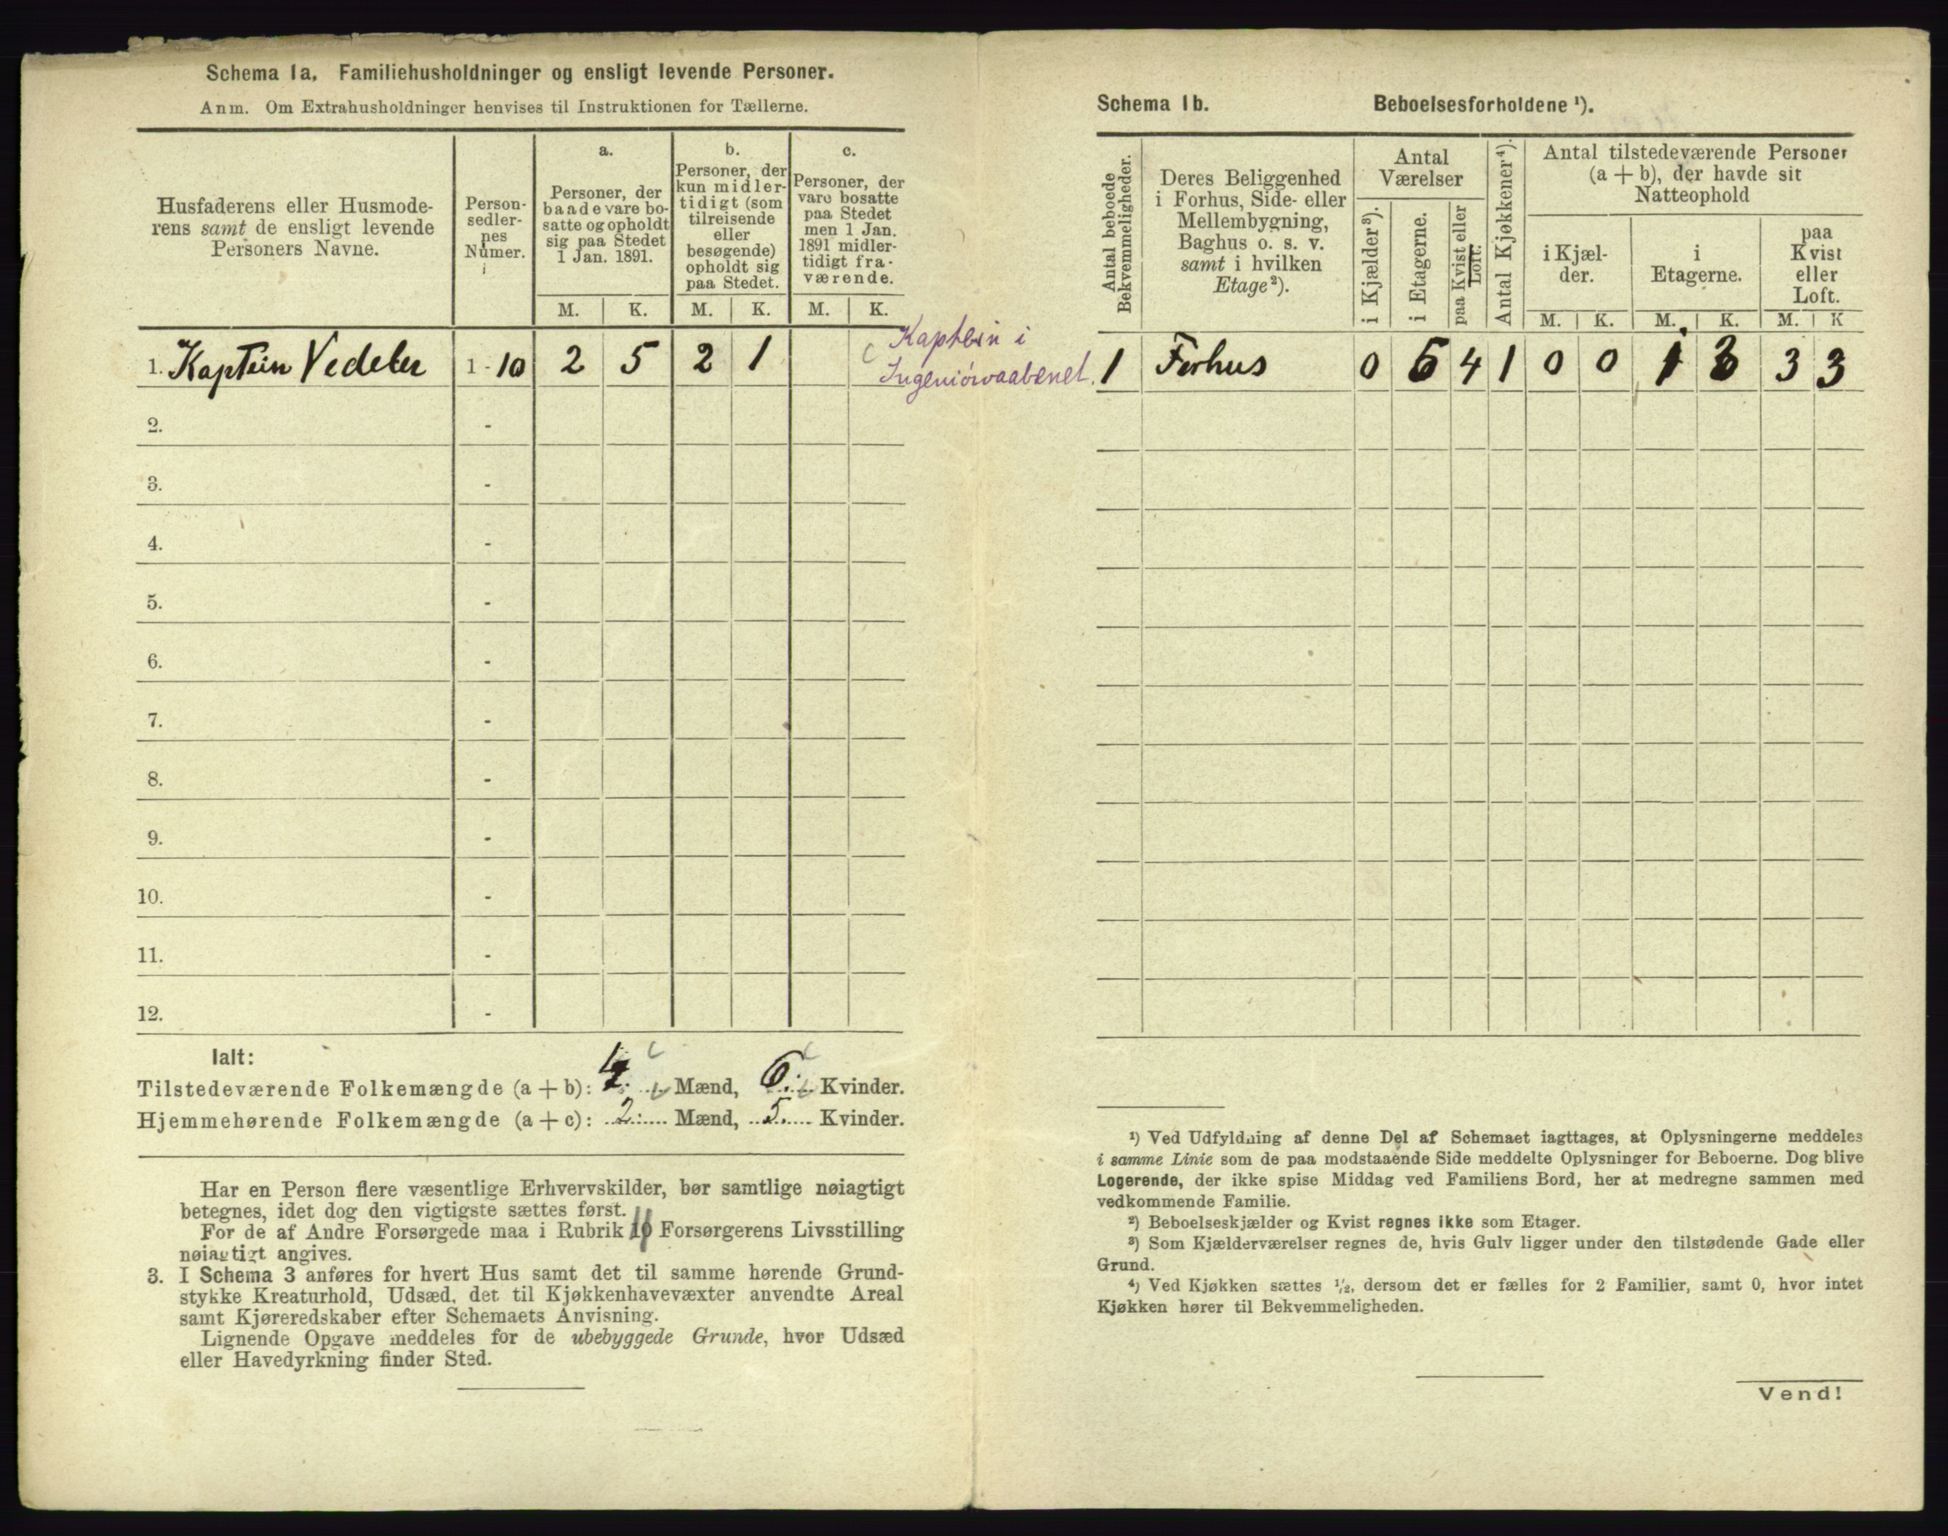 Schema 1a. Familiehusholdninger og ensligt levende Personer.
Anm. Om Extrahusholdninger henvises til Instruktionen for Tællerne.
Husfaderens eller Husmode-
rens samt de ensligt levende
Personers Navne.
Person-
sedler-
nes
Numer.
a.
Personer, der
baade vare bo-
satte og opholdt
sig paa Stedet
1 Jan. 1891.
b.
Personer, der
kun midler-
tidigt (som
tilreisende
eller
besøgende)
opholdt sig
paa Stedet.
c.
Personer, der
vare bosatte
paa Stedet
men 1 Jan.
1891 midler-
tidigt fra-
værende.
M. K. M. K. M. K.
1. Kaptein Vedeler 1 - 10 2 5 2 1
Kaptein i
Ingeniørvaabenet.
2. -
3. -
4. -
5. -
6. -
7. -
8. -
9. -
10. -
11. -
12. -
Ialt:
Tilstedeværende Folkemængde (a + b): 4. Mænd, 6. Kvinder.
Hjemmehørende Folkemængde (a + c): 2. Mænd, 5. Kvinder.
Har en Person flere væsentlige Erhvervskilder, bør samtlige nøiagtigt
betegnes, idet dog den vigtigste sættes først.
For de af Andre Forsørgede maa i Rubrik Forsørgerens Livsstilling
nøiagtigt angives.
3. I Schema 3 anføres for hvert Hus samt det til samme hørende Grund-
stykke Kreaturhold, Udsæd, det til Kjøkkenhavevæxter anvendte Areal
samt Kjøreredskaber efter Schemaets Anvisning.
Lignende Opgave meddeles for de ubebyggede Grunde, hvor Udsæd
eller Havedyrkning finder Sted.
Schema 1b. Beboelsesforholdene ¹).
Antal beboede
Bekvemmeligheder.
Deres Beliggenhed
i Forhus, Side- eller
Mellembygning,
Baghus o. s. v.
samt i hvilken
Etage²).
Antal
Værelser
i Kjælder³).
i Etagerne.
paa Kvist eller
Loft.
Antal Kjøkkener⁴).
Antal tilstedeværende Personer
(a + b), der havde sit
Natteophold
i Kjæl-
der.
i
Etagerne.
paa
Kvist
eller
Loft.
M. K. M. K. M. K
1 Forhus 0 4 1 0 0 1 3 3 3
¹) Ved Udfyldning af denne Del af Schemaet iagttages, at Oplysningerne meddeles
i samme Linie som de paa modstaaende Side meddelte Oplysninger for Beboerne. Dog blive
Logerende, der ikke spise Middag ved Familiens Bord, her at medregne sammen med
vedkommende Familie.
²) Beboelseskjælder og Kvist regnes ikke som Etager.
³) Som Kjælderværelser regnes de, hvis Gulv ligger under den tilstødende Gade eller
Grund.
⁴) Ved Kjøkken sættes ½, dersom det er fælles for 2 Familier, samt 0, hvor intet
Kjøkken hører til Bekvemmeligheden.
Vend!